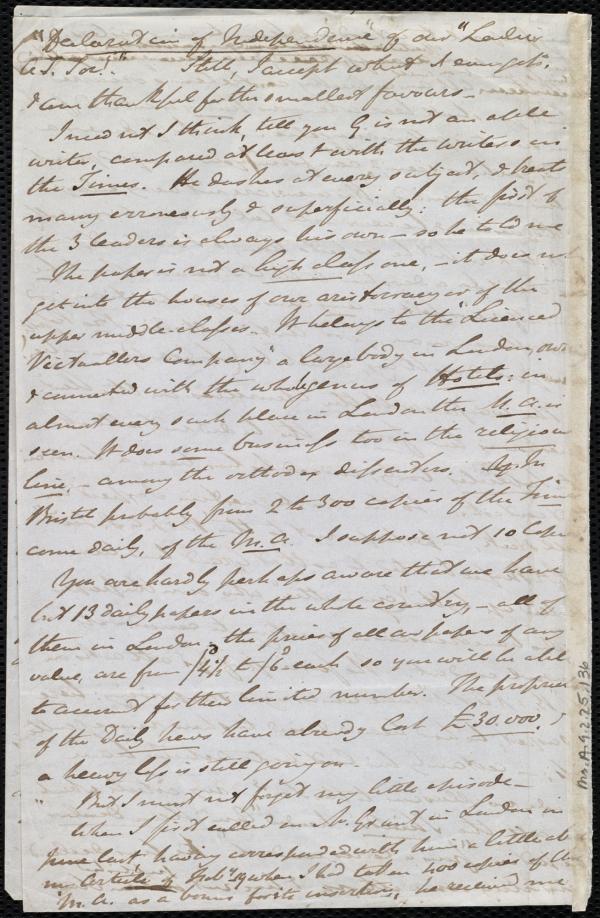 "Declaration of Independence" of our "Ladies
A. S. Soc!." Still, I accept what I can get,
& am thankful for the smallest favours –
I need not I think, tell you G. is not an able
writer, compared at least with the writers in
the Times. He dashes at every subject, & treats
many erroneously & superficially: the first of
the 3 leaders is always his own – so he told me
The paper is not a high class one, – it does not
get into the houses of our aristocracy or of the
upper middle-classes. It belongs to the "Licenced
Victuallers Company" a large body in London,
& connected with the whole genus of Hotels: in
almost every such place in London the M. A. is
seen. It does some business too in the religious
line, – among the orthodox dissenters. In
Bristol probably from 2 to 300 copies of the Times
come daily, of the M. A. I suppose not 10 Copies
You are hardly perhaps aware that we have
but 13 daily papers in the whole country, – all of
them in London – the price of all our papers of any
value, are from /4½ to /6 each so you will be able
to account for their limited number. The proprietors
of the Daily News have already lost £30.000. &
a heavy loss is still going on.
" But I must not forget my little episode –
When I first called on Mr. Grant in London in
June last having corresponded with him a little
my Article of Feby 19 when I had taken 400 copies of the
M. A. as a bonus for its insertion, he received me
Ms. A. 9. 2. 25, 136